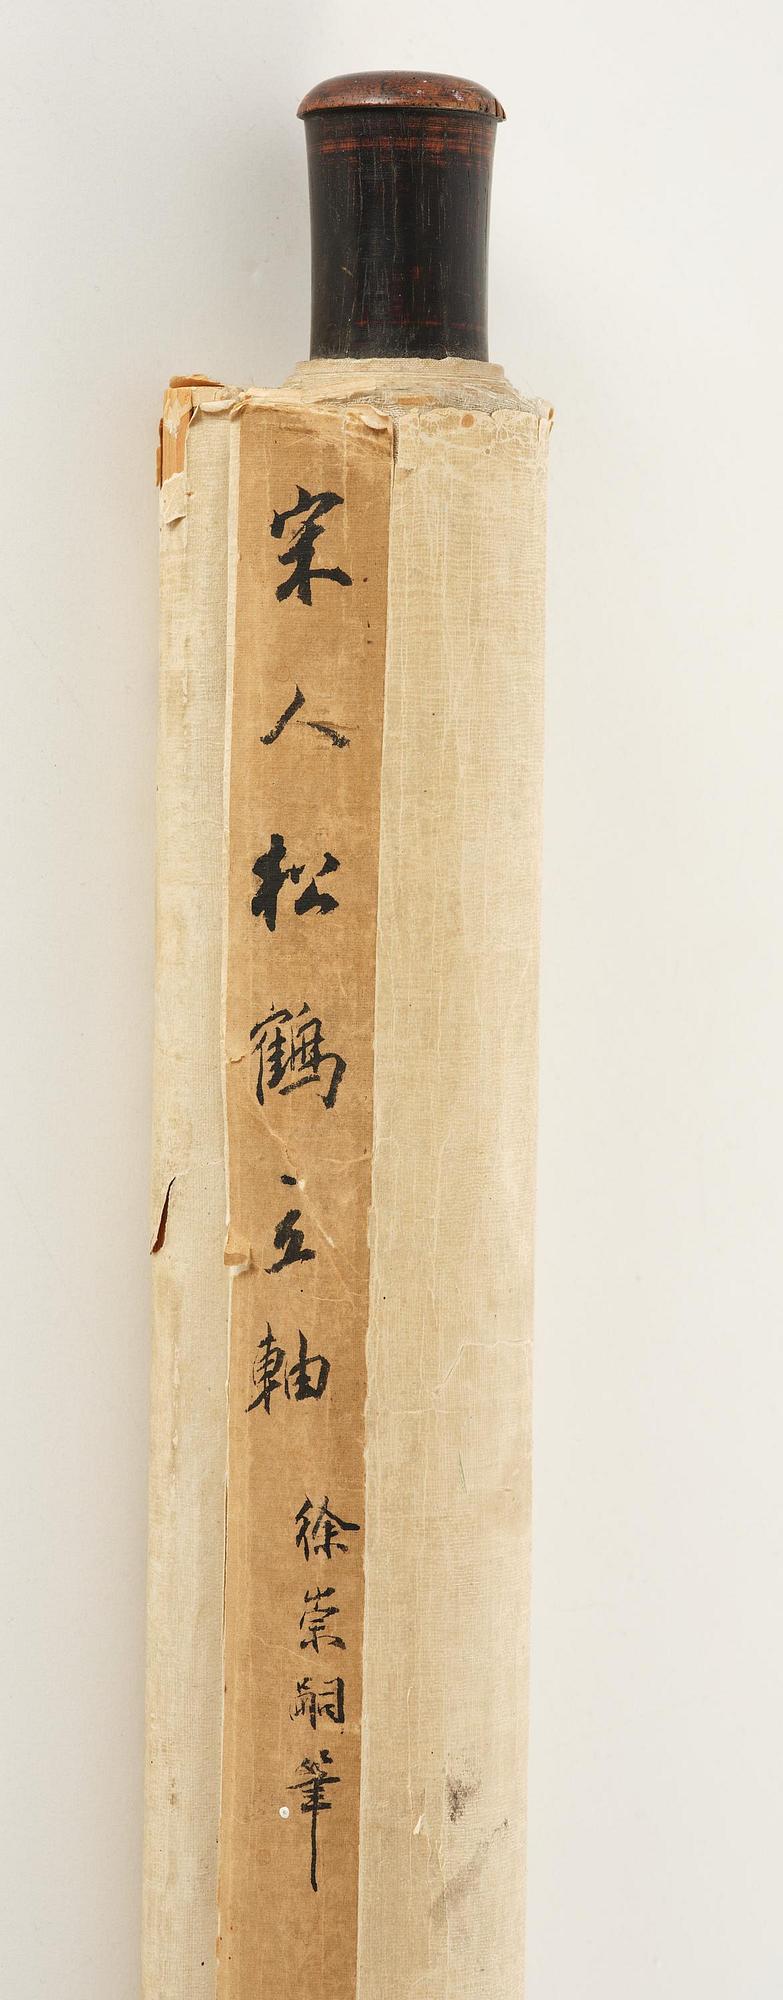 宋人松鶴立軸
徐崇嗣筆